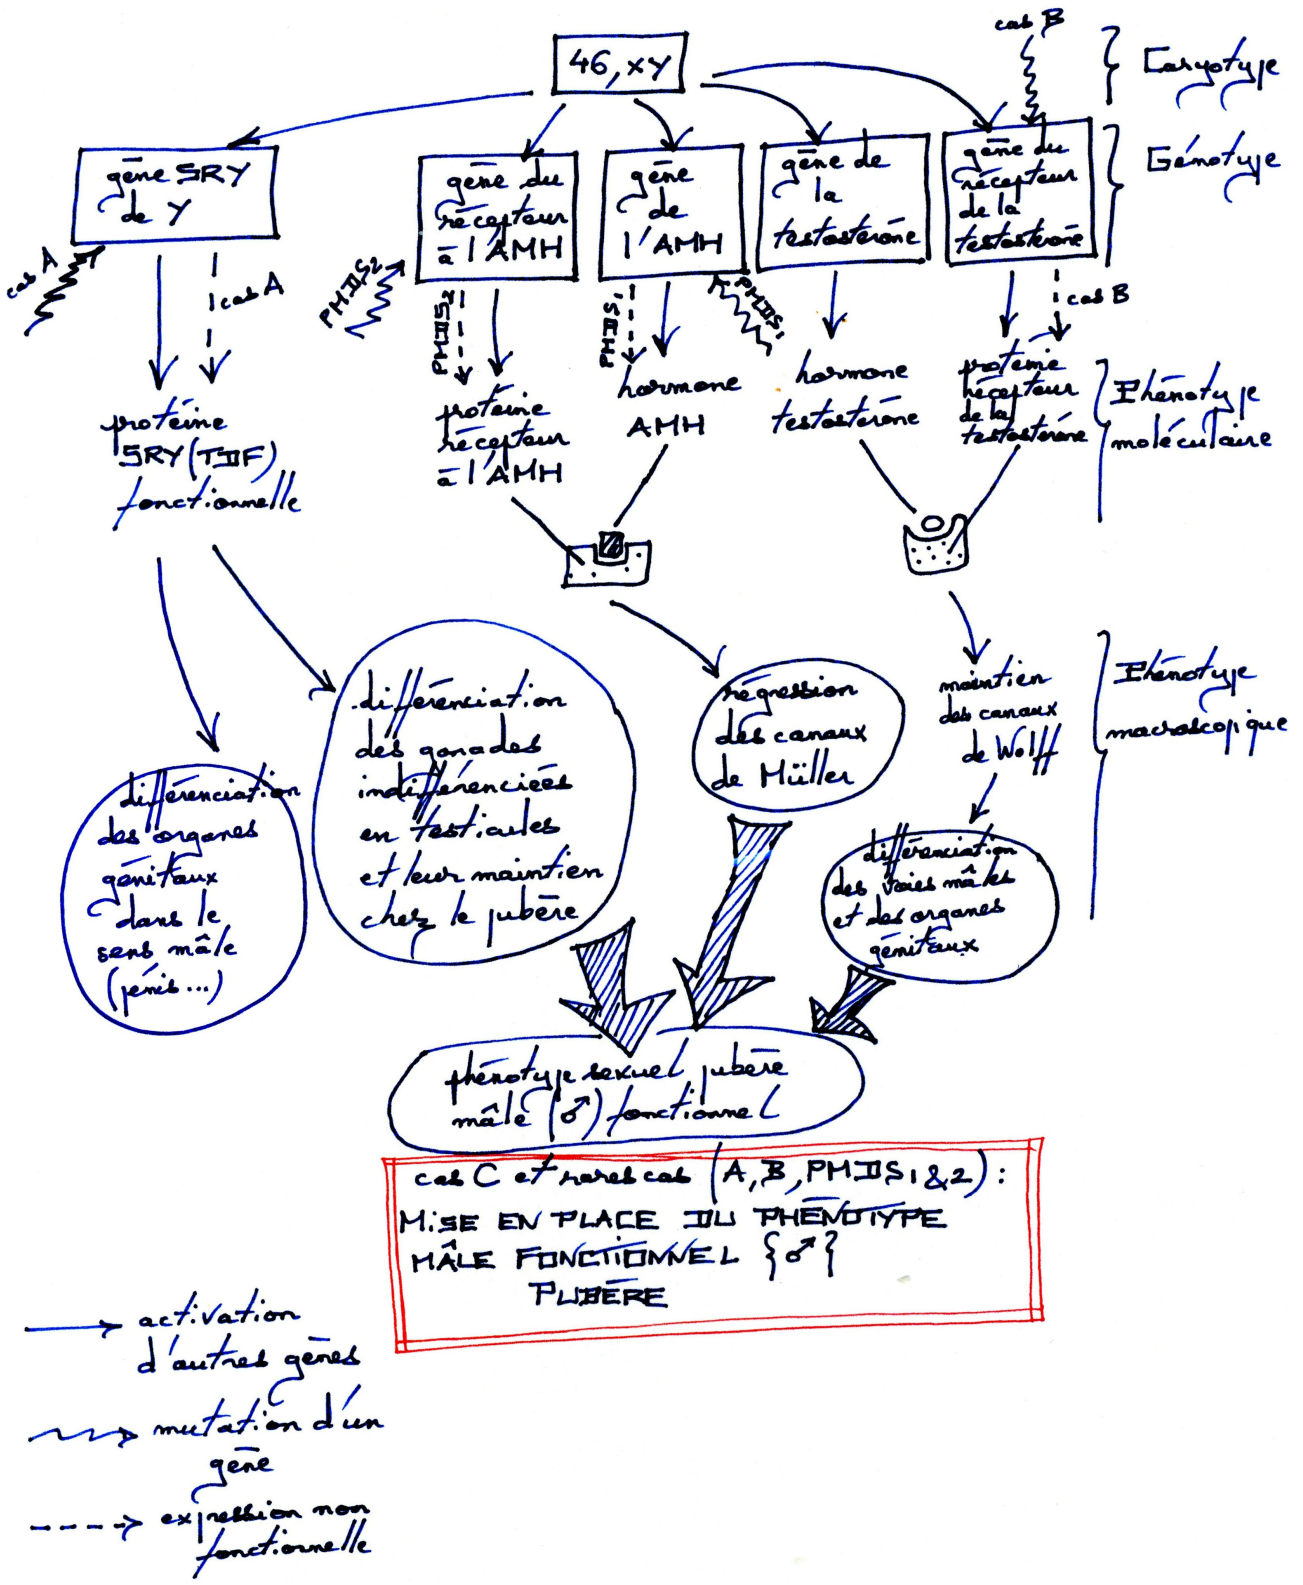 cas B
46, XY
Caryotype
gène SRY
de Y
gène du
récepteur
à l'AMH
gène
de
l'AMH
gène de
la
testostérone
gène du
récepteur
de la
testostérone
Génotype
cas A
cas A
PMDS2
PMDS2
PMDS1
PMDS1
cas B
protéine
SRY (TDF)
fonctionnelle
protéine
récepteur
à l'AMH
hormone
AMH
hormone
testostérone
protéine
récepteur
de la
testostérone
Phénotype
moléculaire
différenciation
des organes
génitaux
dans le
sens mâle
(pénis...)
différenciation
des gonades
indifférenciées
en testicules
et leur maintien
chez le pubère
régression
des canaux
de Müller
maintien
des canaux
de Wolff
différenciation
des voies mâles
et des organes
génitaux
Phénotype
macroscopique
phénotype sexuel pubère
mâle (♂) fonctionnel
cas C et rares cas (A, B, PMDS1&2) :
MISE EN PLACE DU PHÉNOTYPE
MÂLE FONCTIONNEL {♂}
PUBÈRE
activation
d'autres gènes
mutation d'un
gène
expression non
fonctionnelle